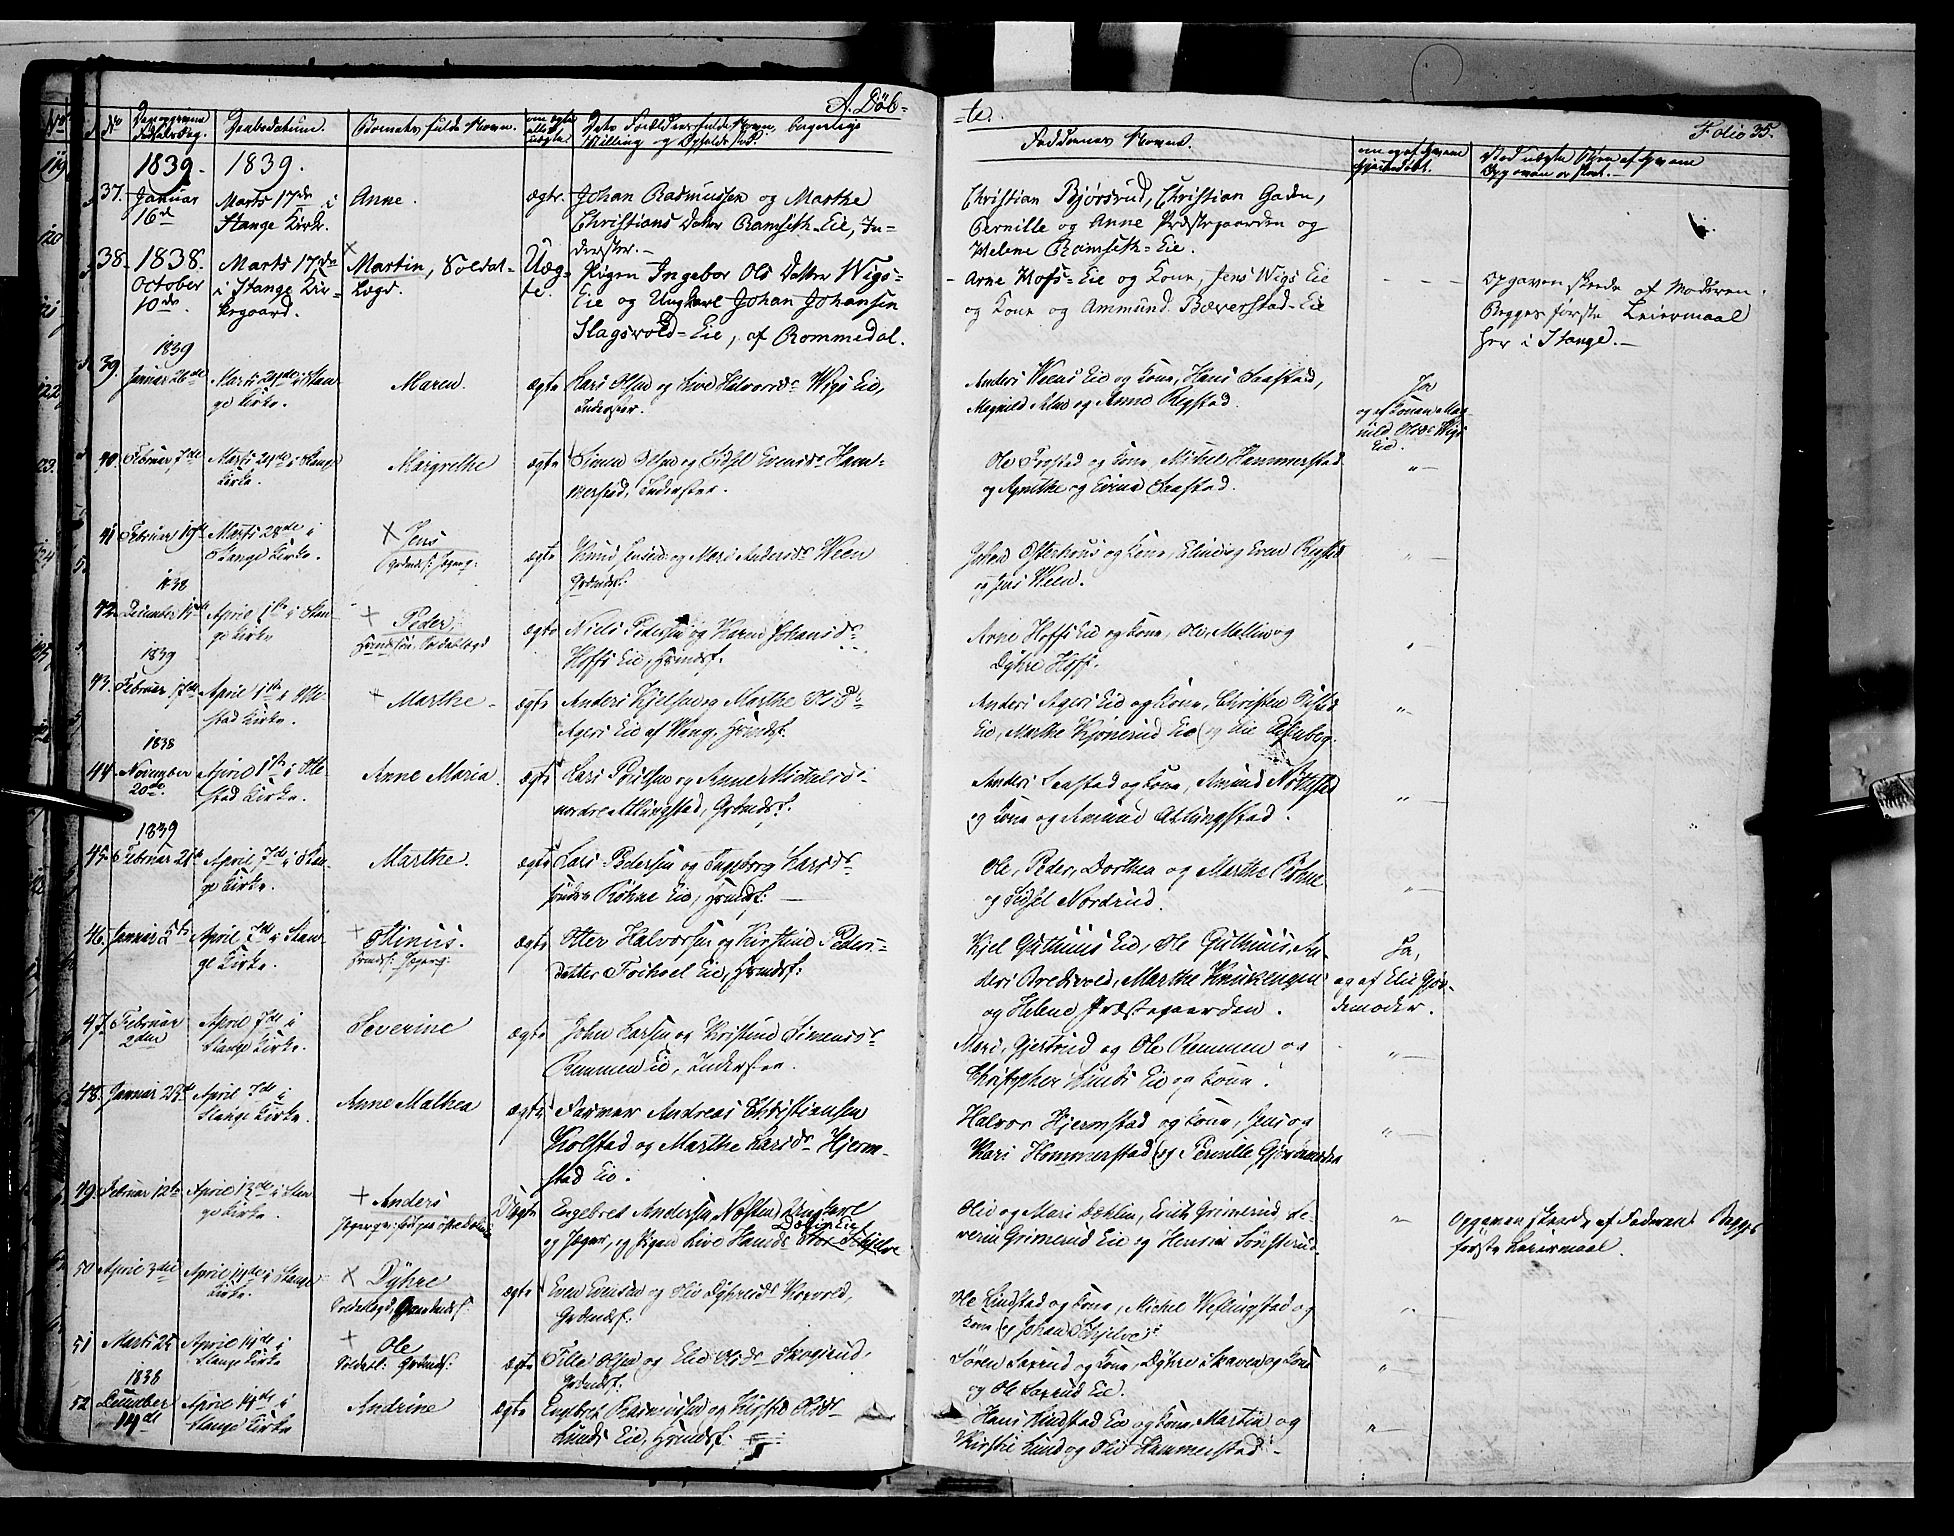 A. Döb-
-te.
Folio 35.
No
Daabsdatum.
Barnets fulde Navn.
Faddernes Navne.
1839.
1839.
37.
Januar
16de
Marts 17de i
Stange Kirke
Anne.
ægte.
Johan Rasmussen og Marthe
Christians Datter Ramseth-Eie, In-
derster.
Christian Bjørsrud, Christian Gaden,
Pernille og Anne Præstegaarden og
Helene Ramseth-Eie.
38.
1838.
October
10de
Marts 17de
i Stange Kir-
kegaard.
Martin, Soldat-
Lægd.
Uæg-
te.
Pigen Ingebor Ols Datter Wigs-
Eie og Ungkarl Johan Johansen
Slagsvold-Eie, af Rommedal.
Arne Hofs-Eie og Kone, Jens Wigs Eie
og Kone og Ammund Bæverstad-Eie
Opgaven skeede af Moderen.
Begges første Leiermaal
her i Stange.
39.
1839
Januar 26de
Marts 24de i Stan-
ge Kirke.
Maren.
ægte
Lars Olsen og Live Halvorsdr Wigs Eie,
Inderster.
Anders Weens Eie og Kone, Hans Saastad,
og Anne Rygstad.
Ja
og af Konen Mag-
nild Olsdr Wigs
Eie.
40.
Februar 7de
Marts 24de i Stange
Kirke.
Margrethe
ægte
Simen Olsen og Sidsel Evensdr Ham-
merstad, Inderster.
Ole Frostad og Kone, Michel Hammerstad
og Agnethe og Even Saastad.
41
Februar 19de
Marts 28de i
Stange Kirke.
Jens
ægte
Knud Jensen og Mari Andersdr Ween
Grdmdsf.
Johan Østerhuus og Kone, Eline og Even Rygstad
og Jens Ween.
1838
42.
December 15de
April 1ste i Stan-
ge Kirke
Peder,
ægte
Niels Pedersen og Karen Johansdr
Hoffs Eie, Huusmdsf.
Arne Hoffs Eie og Kone, Ole, Mallin og
Dyhre Hoff.
1839
43.
Februar 17de
April 1ste i Otte-
stad Kirke.
Marthe
ægte
Anders Kjelsen og Marthe Olsdr
Agers Eie af Wang, Huusmdsf.
Anders Agers Eie og Kone, Christen
Eie, Marthe Kjønerud Eie og Eli
1838
44
November
20de
April 1ste i Otte-
stad Kirke.
Anne Maria
ægte
Lars Poulsen og Anne Michelsdr
nordre Atlungstad, Grdmdsf.
Anders Saastad og Kone, Amund
og Kone og Amund Atlungstad.
1839
45.
Februar 21de
April 7de i Stan-
ge Kirke.
Marthe.
ægte
Lars Pedersen og Ingeborg Larsdr
søndre Røhne Eie, Huusmdsf.
Ole, Peder, Dorthea og Marthe Røhne
og Sidsel Nordrud.
46.
Januar 5te
April 7de i Stan-
ge Kirke.
Stinus.
ægte
Otter Halvorsen og Kirstine Peders-
datter Frihoel Eie, Huusmdsf:
Kjel Guthuus Eie, Ole Guthuus, An-
ders Bredvold, Marthe Knuizengen
og Helene Præstegaarden.
Ja,
og af Elie Gjor-
demoder.
47.
Februar
2den
April 7de i
Stange Kirke.
Severine
ægte
John Larsen og Kristine Simensdr
Remmen Eie, Inderster.
Mari, Gjertrud og Ole Remmen og
Christopher Lunds Eie og Kone.
48.
Januar 25de
April 7de i
Stange Kirke.
Anne Mathea
ægte
Farmar Andreas Christiansen
Kolstad og Marthe Larsdr Hjerm-
stad Eie.
Halvor Hjermstad og Kone, Jens og
Kari Hommerstad og Pernille Gjordemoder
49.
Februar 12te
April 13de i Stan-
ge Kirke.
Anders
Uægte
Engebret Andersen Nøsten, Ungkarl
og Jæger, og Pigen Live Hansdr Stor Skjelve
Olia og Mari Dæhlen, Erich Grimerud, Se-
verin Grimerud Eie og Henrik Sønsterud.
Opgaven skeede af Faderen. Begges
første Leiermaal.
50
April 3die
April 14de i Stange
Kirke.
Dyhre
ægte
Even Evensen og Olia Dyhresdr Korvold,
Grdmdsf:
Ole Lindstad og Kone, Michel Weslingstad og
Kone og Johan Skjelve
51
Marts 25
April 14de i
Stange Kirke
Ole
Soldatl: Grdmdsf:
ægte
Tille Olsen og Eli Olsdr Skogrud,
Grdmdsf:
Søren Saxrud og Kone, Dyhre Skaven og Kone
og Ole Saxrud Eie.
1838
52
December
14de
April 14de i
Stange Kirke
Andrine
ægte
Engebret Rasmusen og Kirstie Olsdr
Lunds Eie, Huusmdsf:
Hans Lindstad Eie og Kone, Martin og
Kirstie Lund og Olia Hammerstad.